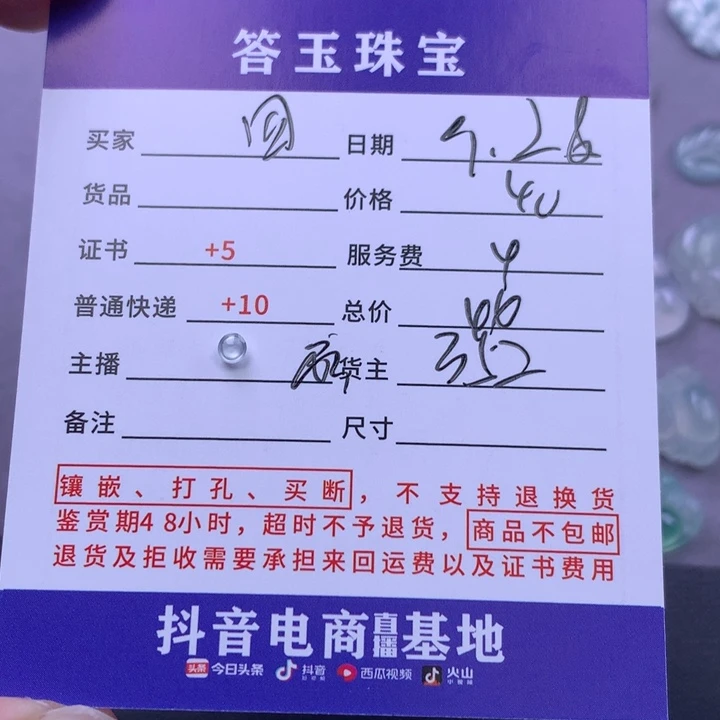 答玉珠宝
买家 回 日期 9.28
货品 价格 40
证书 +5 服务费 4
普通快递 +10 总价
主播 货主 352
备注 尺寸
镶嵌、打孔、买断，不支持退换货
鉴赏期48小时，超时不予退货，商品不包邮
退货及拒收需要承担来回运费以及证书费用
抖音电商直播基地
头条 今日头条 抖音 西瓜视频 火山